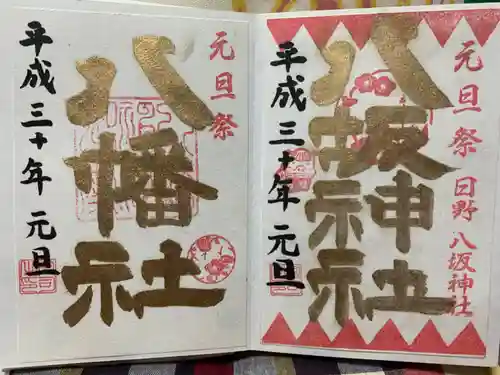 元旦祭
八坂神社
平成三十年 元旦
日野 八坂神社
元旦祭
八幡社
平成三十年 元旦